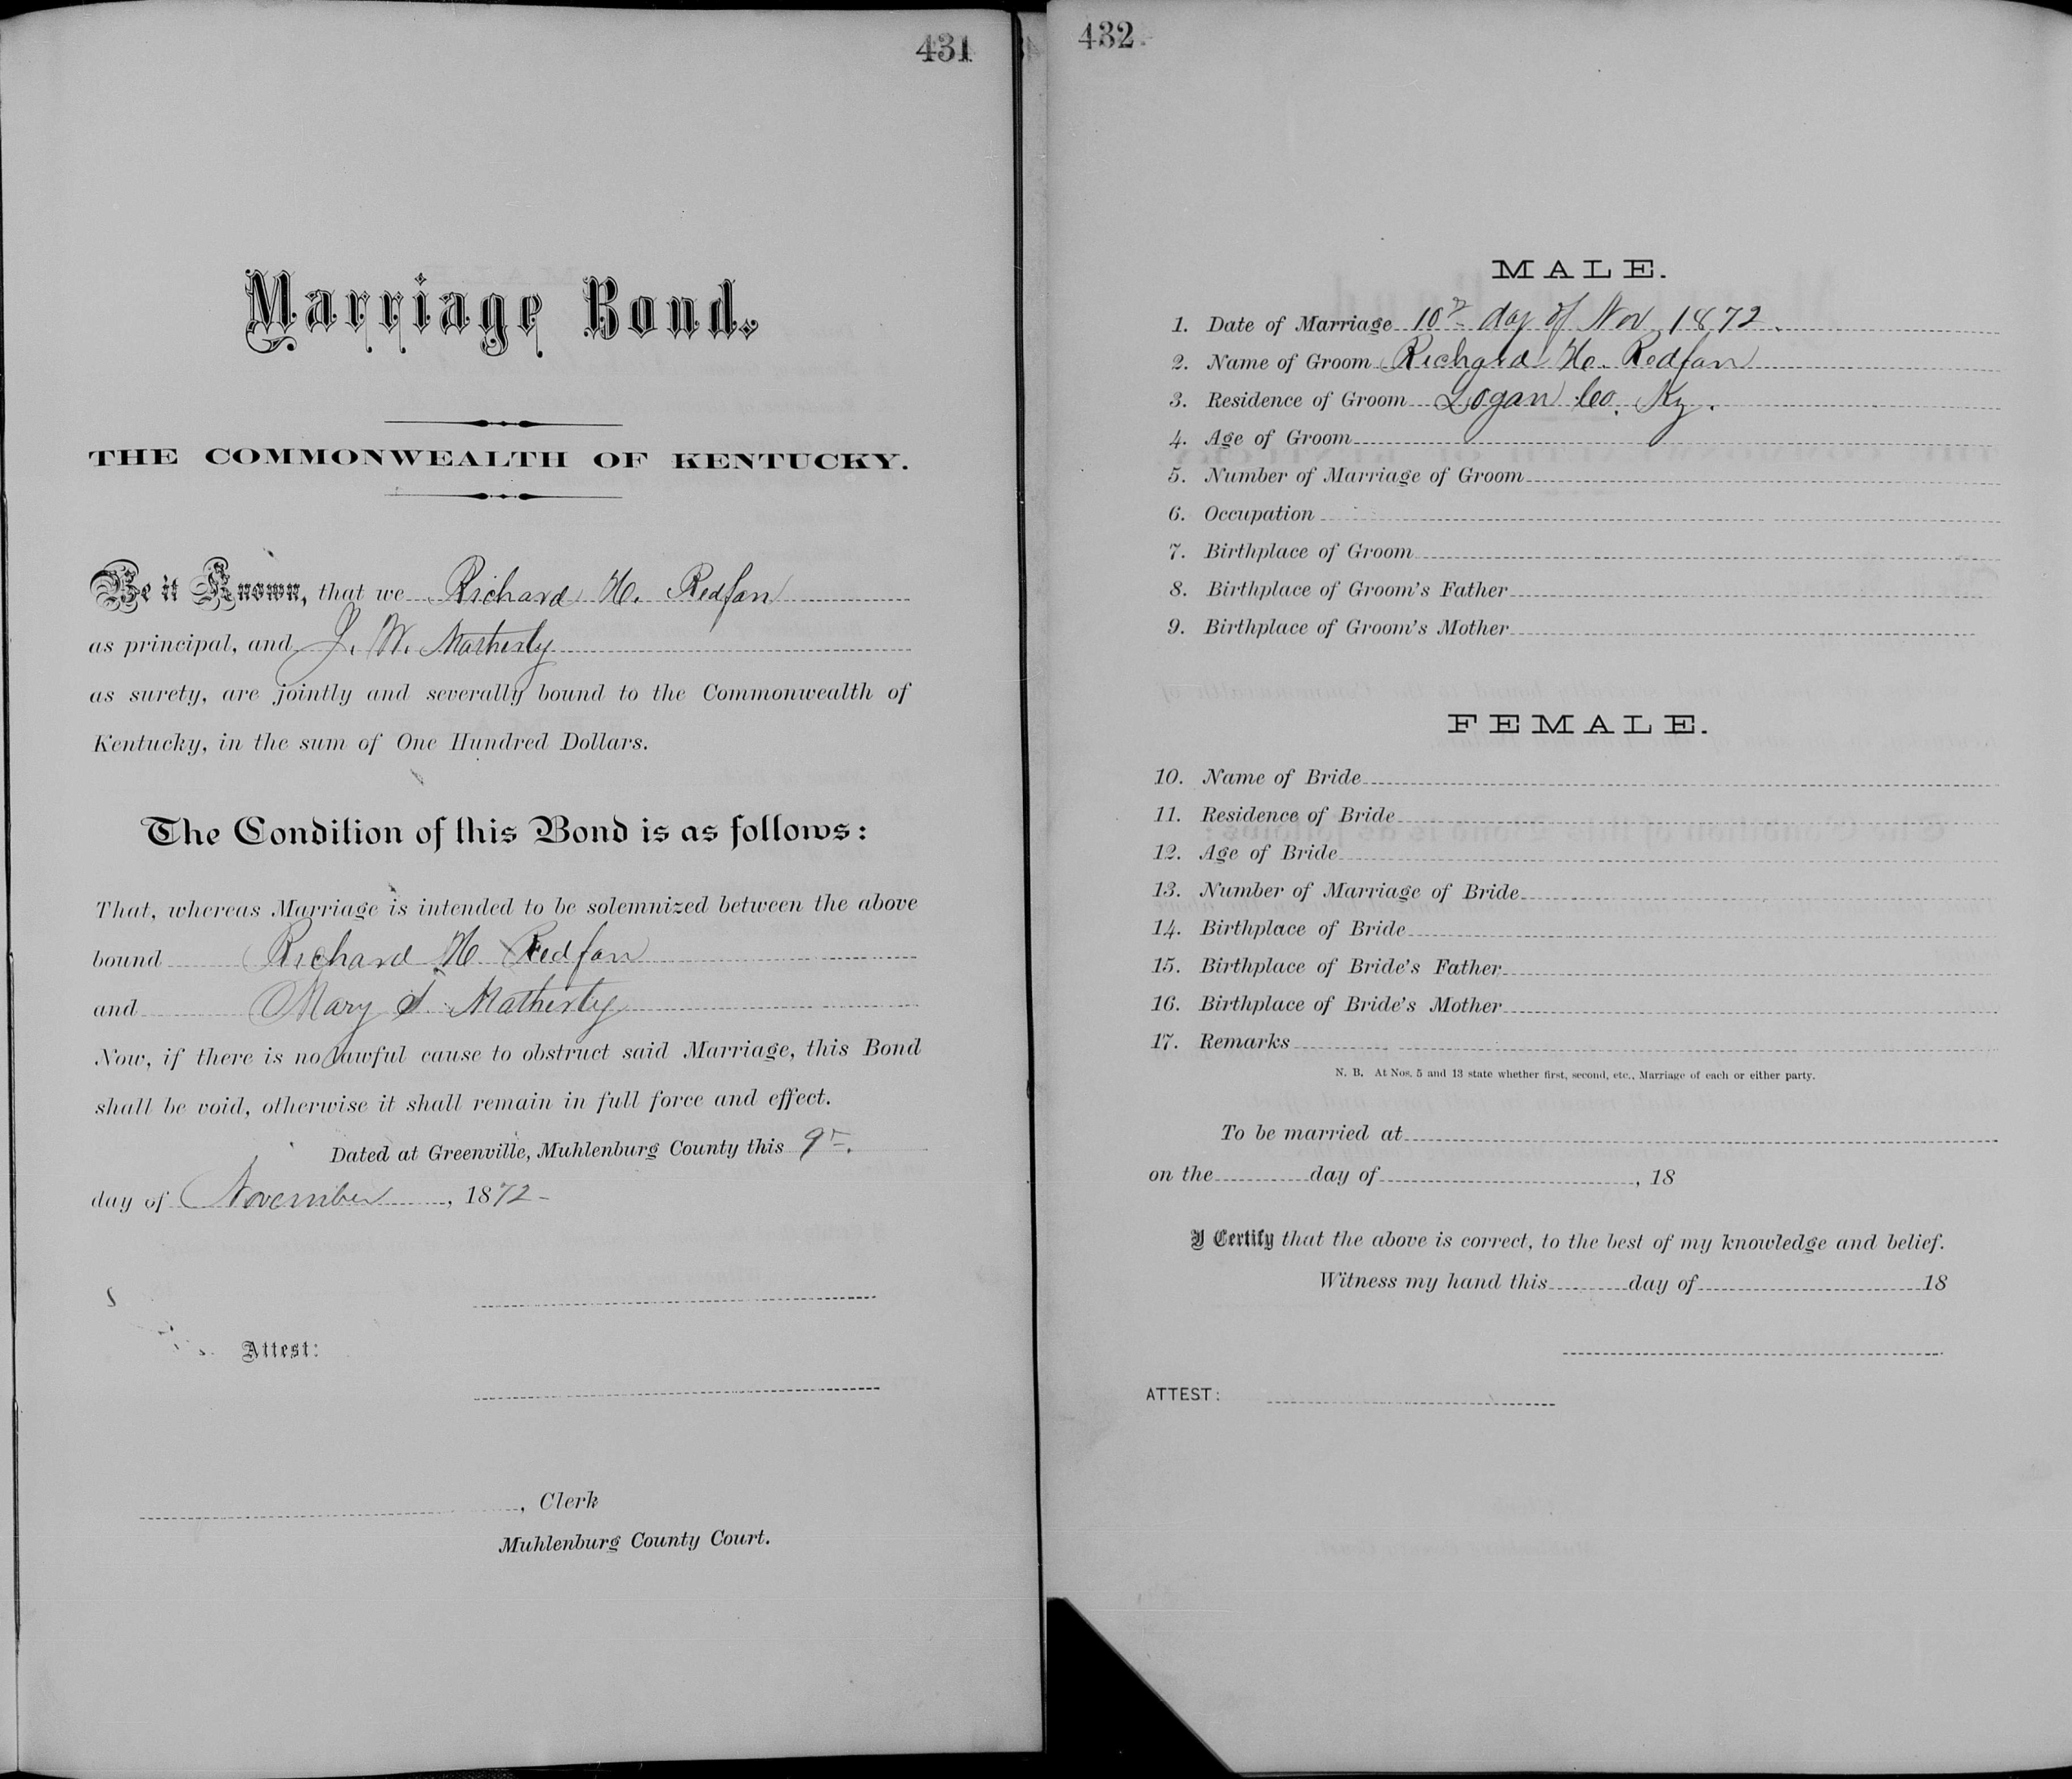 431
Marriage Bond.
THE COMMONWEALTH OF KENTUCKY.
Be it Known, that we Richard H. Redfan
as principal, and J. W. Matherly
as surety, are jointly and severally bound to the Commonwealth of
Kentucky, in the sum of One Hundred Dollars.
The Condition of this Bond is as follows:
That, whereas Marriage is intended to be solemnized between the above
bound Richard H Redfan
and Mary S. Matherly
Now, if there is no lawful cause to obstruct said Marriage, this Bond
shall be void, otherwise it shall remain in full force and effect.
Dated at Greenville, Muhlenburg County this 9th.
day of November, 1872-
Attest:
, Clerk
Muhlenburg County Court.
432
MALE.
1. Date of Marriage 10th day of Nov 1872.
2. Name of Groom Richard H. Redfan
3. Residence of Groom Logan Co. Ky.
4. Age of Groom
5. Number of Marriage of Groom
6. Occupation
7. Birthplace of Groom
8. Birthplace of Groom's Father
9. Birthplace of Groom's Mother
FEMALE.
10. Name of Bride
11. Residence of Bride
12. Age of Bride
13. Number of Marriage of Bride
14. Birthplace of Bride
15. Birthplace of Bride's Father
16. Birthplace of Bride's Mother
17. Remarks
N. B. At Nos. 5 and 13 state whether first, second, etc., Marriage of each or either party.
To be married at
on the day of , 18
I Certify that the above is correct, to the best of my knowledge and belief.
Witness my hand this day of 18
ATTEST: